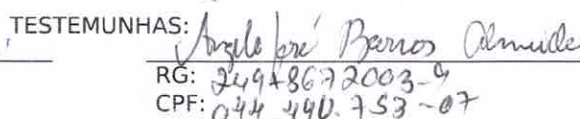 TESTEMUNHAS: Angelo José Barros Almeida
RG: 24948672003-9
CPF: 044.490.753-07